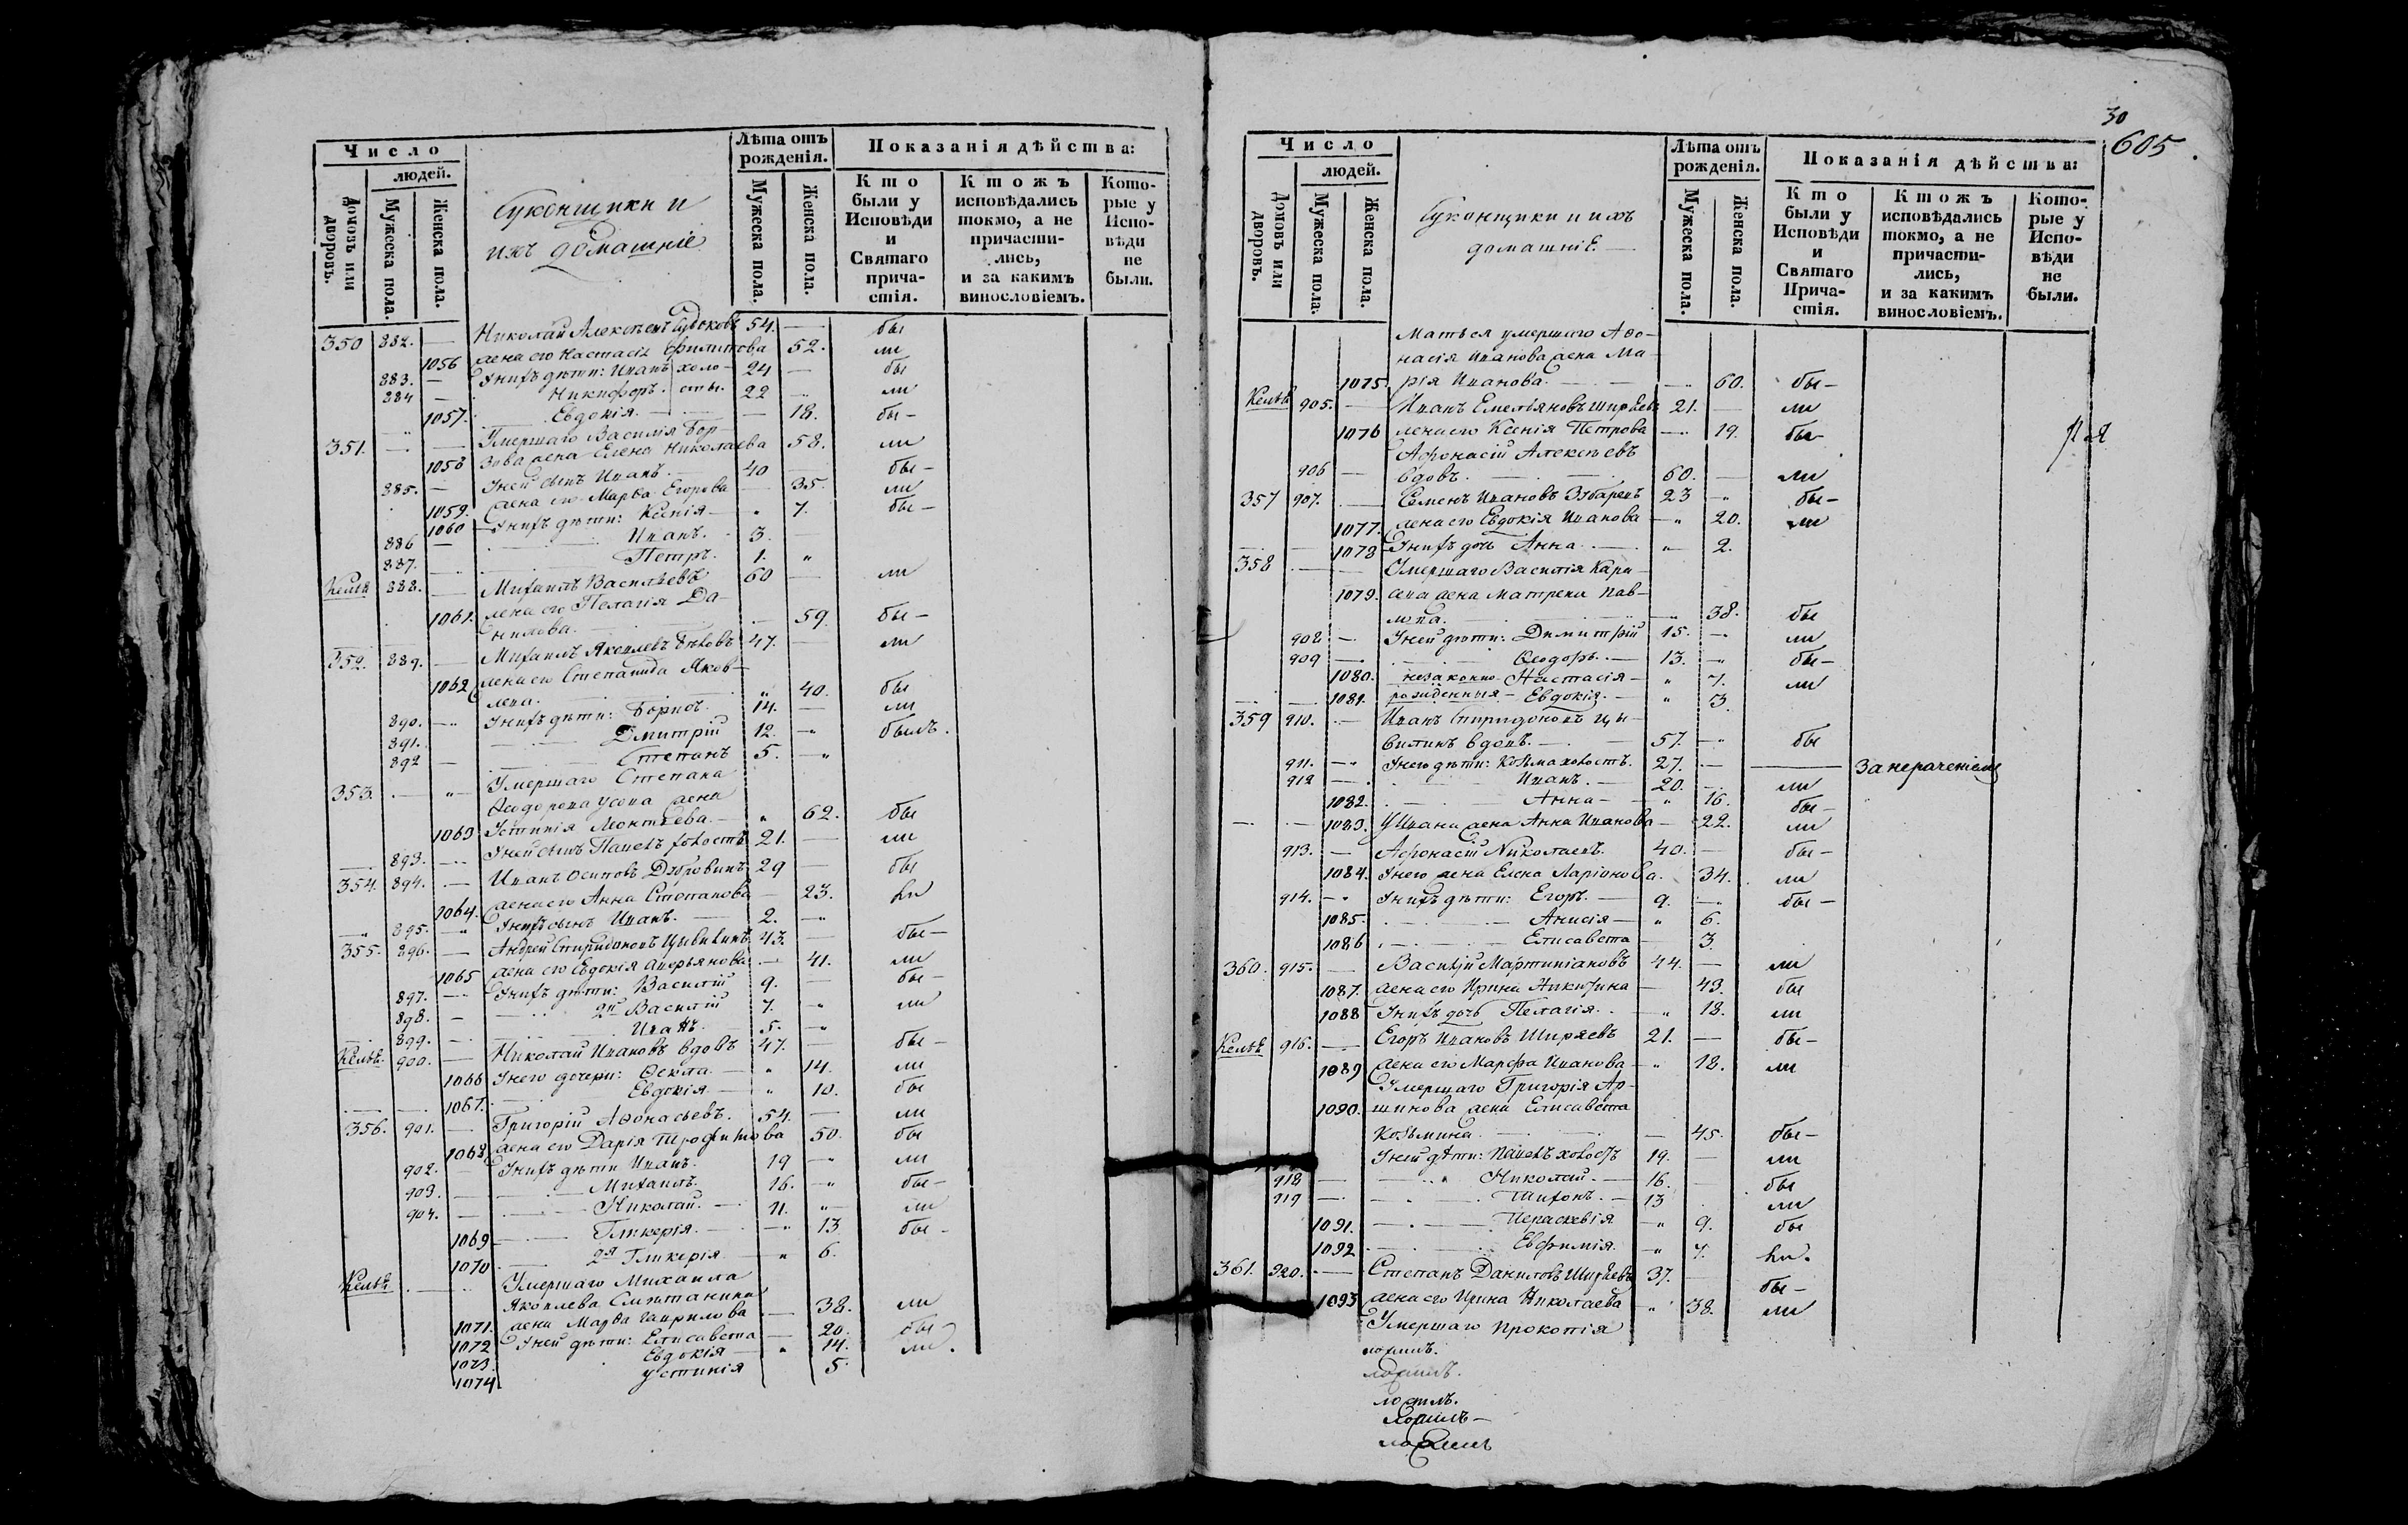 Число
людей.
Домовъ или дворовъ.
Мужеска пола.
Женска пола.
Суконщики и
ихъ домашніе
Лѣта отъ рожденія.
Мужеска пола.
Женска пола.
Показанія дѣйства:
Кто были у Исповѣди и Святаго причастія.
Ктожъ исповѣдались токмо, а не причастились, и за какимъ винословіемъ.
Которые у Исповѣди не были.
350 882. — Николай Алексѣевъ 54. — бы
1056 жена его Настасія Филипова 52. ли
883. — У нихъ дѣти: Иванъ холо- 24 — бы
884 — Никифоръ. сты. 22 ли
1057. Евдокія. — — 18. бы —
351. — — Умершаго Василія Бор-
1058 зова жена Елена Николаева 58. ли
885. — У ней сынъ Иванъ. — 40 — бы —
1059. жена его Марѳа Егорова — 35. ли
1060 У нихъ дѣти: Ксенія — „ 7. бы —
886 — Иванъ. 3. —
887. — Петръ. 1. „
Кельѣ 888. — Михаилъ Васильевъ 60 — ли
1061. жена его Пелагія Да-
нилова. — 59. бы —
352. 889. — Михаилъ Яковлевъ Быковъ 47. — ли
1062 жена его Степанида Яков-
лева. „ 40. бы
890. — У нихъ дѣти: Борисъ. 14. — ли
891. Дмитрій 12. „ былъ.
892 — Степанъ 5. — „
353. — „ Умершаго Степана
Ѳеодорова Усова жена
1063 Устинія Леонтьева. — „ 62. бы
893. — У ней сынъ Павелъ холостъ 21. — ли
354. 894. — Иванъ Осиповъ Дубровинъ 29 — бы
1064. жена его Анна Степанова — 23. ли
895. „ У нихъ сынъ Иванъ. — 2. — „
355. 896. — Андрей Спиридоновъ Цывилинъ 43. — бы —
1065 жена его Евдокія Аверьянова — 41. ли
897. — У нихъ дѣти: Василій 9. — бы
898. — 2й Василій 7. „ ли
899. — Иванъ. 5. „
Кельѣ. 900. — Николай Ивановъ вдовъ 47. — бы —
1066 У него дочери: Ѳекла. — „ 14. ли
1067. Евдокія — „ 10. бы
356. 901. — Григорій Аѳонасьевъ. 54. — ли
1068 жена его Дарія Трофимова 50. бы
902. — У нихъ дѣти Иванъ. 19 — „ ли
903. — Михаилъ. 16. „ бы —
904. — Николай. — 11. „ ли
1069 — Гликерія. — „ 13 бы —
1070 2я Гликерія — „ 6.
Кельѣ. — Умершаго Михаила
Яковлева Сметанина
1071. жена Марѳа Гаврилова — 38. ли
1072 У ней дѣти: Елисавета — 20. бы
1073. Евдокія — „ 14. ли.
1074 Устинія 5.
30
605
Число
людей.
Домовъ или дворовъ.
Мужеска пола.
Женска пола.
Суконщики и ихъ
домашніе —
Лѣта отъ рожденія.
Мужеска пола.
Женска пола.
Показанія дѣйства:
Кто были у Исповѣди и Святаго Причастія.
Ктожъ исповѣдались токмо, а не причастились, и за какимъ винословіемъ.
Которые у Исповѣди не были.
Матвея умершаго Аѳо-
насія Иванова жена Ма-
1075. рія Иванова. — — 60. бы —
Кельѣ 905. — Иванъ Емельяновъ Ширяевъ 21. — ли
1076 жена его Ксенія Петрова — 19. бы
Афонасій Алексѣевъ
906 — вдовъ. 60. — ли
357 907. — Семенъ Ивановъ 23 — „ бы —
1077. жена его Евдокія Иванова — „ 20. ли
1078 У нихъ дочь Анна. — „ 2.
358 — Умершаго Василія Кара-
1079. сева жена Матрена Пав-
лова. — 38. бы
908 — У ней дѣти: Димитрій 15. — ли
909 — Ѳеодоръ. — 13. — „ бы —
1080. незаконно Настасія — „ 7. ли
1081. рожденныя — Евдокія. — „ 3
359 910. — Иванъ Спиридоновъ Цы-
вилинъ вдовъ. — 57. — „ бы
911. — У него дѣти: Козьма холостъ. 27. — — За нераченіемъ
912 — Иванъ. — 20. — ли
1082. Анна — „ 16. бы —
1083. У Ивана жена Анна Иванова — 22. ли
913. — Афонасій Николаевъ. 40. — бы —
1084. У него жена Елена Ларіонова. 34. ли
914. — „ У нихъ дѣти: Егоръ. — 9. — „ бы —
1085. Анисія — „ 6.
1086 Елисавета — 3.
360. 915. — Василій Мартиніановъ 44. — ли
1087. жена его Ирина Никитина — 43. бы
1088 У нихъ дочь Пелагія. „ 18. ли
Кельѣ 916. — Егоръ Ивановъ Ширяевъ 21. — бы —
1089 жена его Марфа Иванова — „ 18. ли
Умершаго Григорія Ар-
1090. шинова жена Елисавета
Козьмина. — — 45. бы —
У ней дѣти: Павелъ холостъ 19. — ли
918 — Николай. — 16. — бы
919 — Тихонъ. — 13 ли
1091. — Параскевія — „ 9. бы
1092 Евфимія. — „ 7. ли.
361. 920. — Степанъ Даниловъ Ширяевъ 37. — бы —
1093 жена его Ирина Николаева — „ 38. ли
Умершаго Прокопія